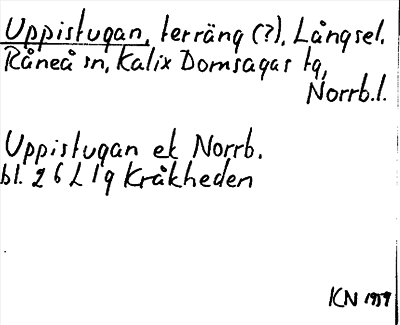 Uppistugan, terräng (?), Långsel,
Råneå sn, Kalix Domsagas tg,
Norrb.l.
Uppistugan ek Norrb.
bl. 26 L 1g Kråkheden
KN 1959